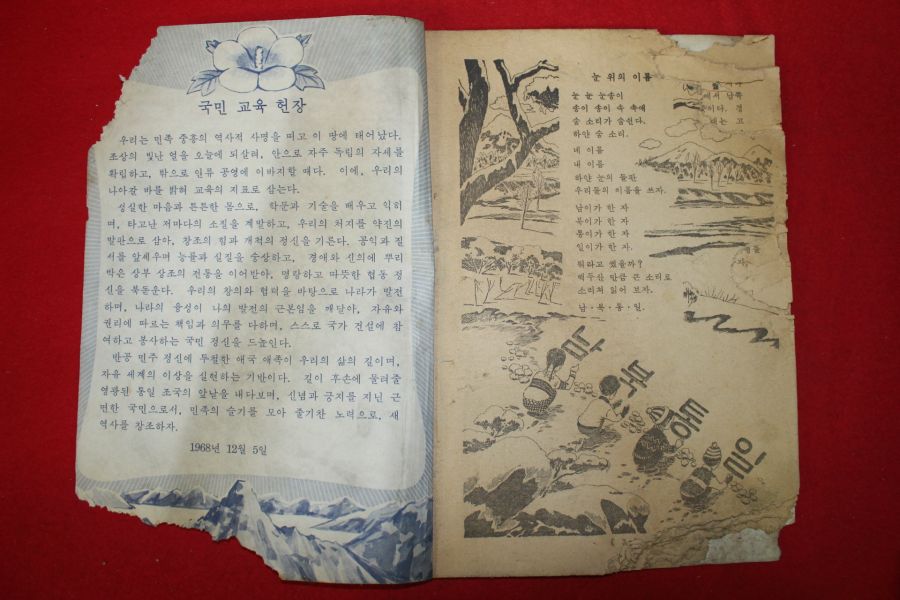 국민 교육 헌장
우리는 민족 중흥의 역사적 사명을 띠고 이 땅에 태어났다.
조상의 빛난 얼을 오늘에 되살려, 안으로 자주 독립의 자세를
확립하고, 밖으로 인류 공영에 이바지할 때다. 이에, 우리의
나아갈 바를 밝혀 교육의 지표로 삼는다.
성실한 마음과 튼튼한 몸으로, 학문과 기술을 배우고 익히
며, 타고난 저마다의 소질을 계발하고, 우리의 처지를 약진의
발판으로 삼아, 창조의 힘과 개척의 정신을 기른다. 공익과 질
서를 앞세우며 능률과 실질을 숭상하고, 경애와 신의에 뿌리
박은 상부 상조의 전통을 이어받아, 명랑하고 따뜻한 협동 정
신을 북돋운다. 우리의 창의와 협력을 바탕으로 나라가 발전
하며, 나라의 융성이 나의 발전의 근본임을 깨달아, 자유와
권리에 따르는 책임과 의무를 다하며, 스스로 국가 건설에 참
여하고 봉사하는 국민 정신을 드높인다.
반공 민주 정신에 투철한 애국 애족이 우리의 삶의 길이며,
자유 세계의 이상을 실현하는 기반이다. 길이 후손에 물려줄
영광된 통일 조국의 앞날을 내다보며, 신념과 긍지를 지닌 근
면한 국민으로서, 민족의 슬기를 모아 줄기찬 노력으로, 새
역사를 창조하자.
1968년 12월 5일
눈 위의 이름
눈 눈 눈송이
송이 송이 속 속에
숨 소리가 숨쉰다.
하얀 숨 소리.
네 이름
내 이름
하얀 눈의 들판
우리들의 이름을 쓰자.
남이가 한 자
북이가 한 자
통이가 한 자
일이가 한 자.
뭐라고 썼을까?
백두산 만큼 큰 소리로
소리쳐 읽어 보자.
남·북·통·일.
에서 남쪽
이다. 경
내는 고
남북통일